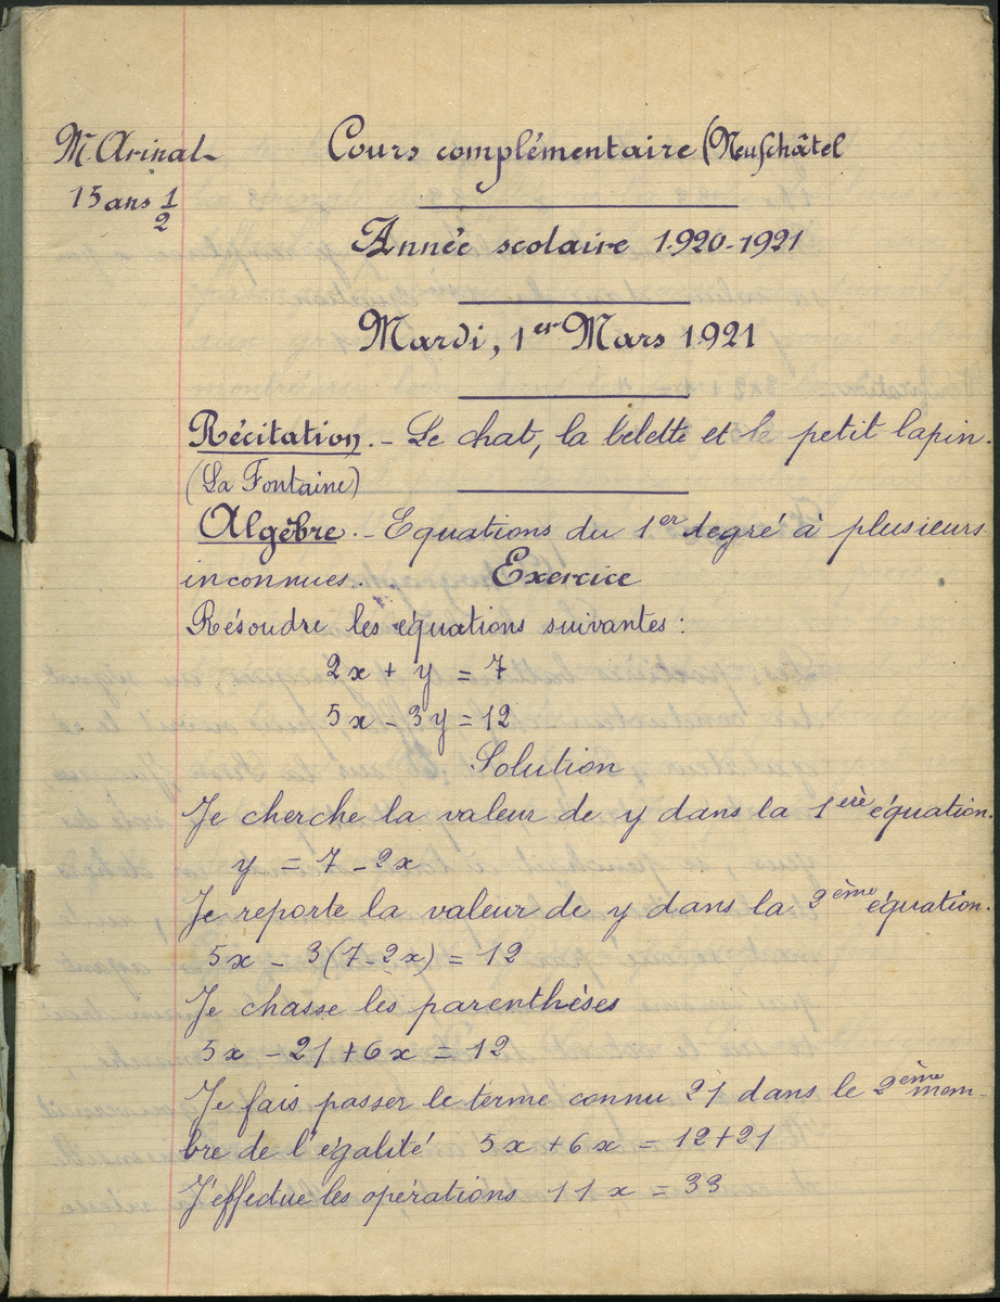 M. Arinal
15 ans 1/2
Cours complémentaire (Neufchâtel
Année scolaire 1920-1921
Mardi, 1er Mars 1921
Récitation. - Le chat, la belette et le petit lapin.
(La Fontaine)
Algèbre. - Equations du 1er degré à plusieurs
inconnues. Exercice
Résoudre les équations suivantes :
2x + y = 7
5x - 3y = 12
Solution
Je cherche la valeur de y dans la 1ère équation.
y = 7 - 2x
Je reporte la valeur de y dans la 2ème équation.
5x - 3(7-2x) = 12
Je chasse les parenthèses
5x - 21 + 6x = 12
Je fais passer le terme connu 21 dans le 2ème mem-
bre de l'égalité 5x + 6x = 12 + 21
J'effectue les opérations 11x = 33